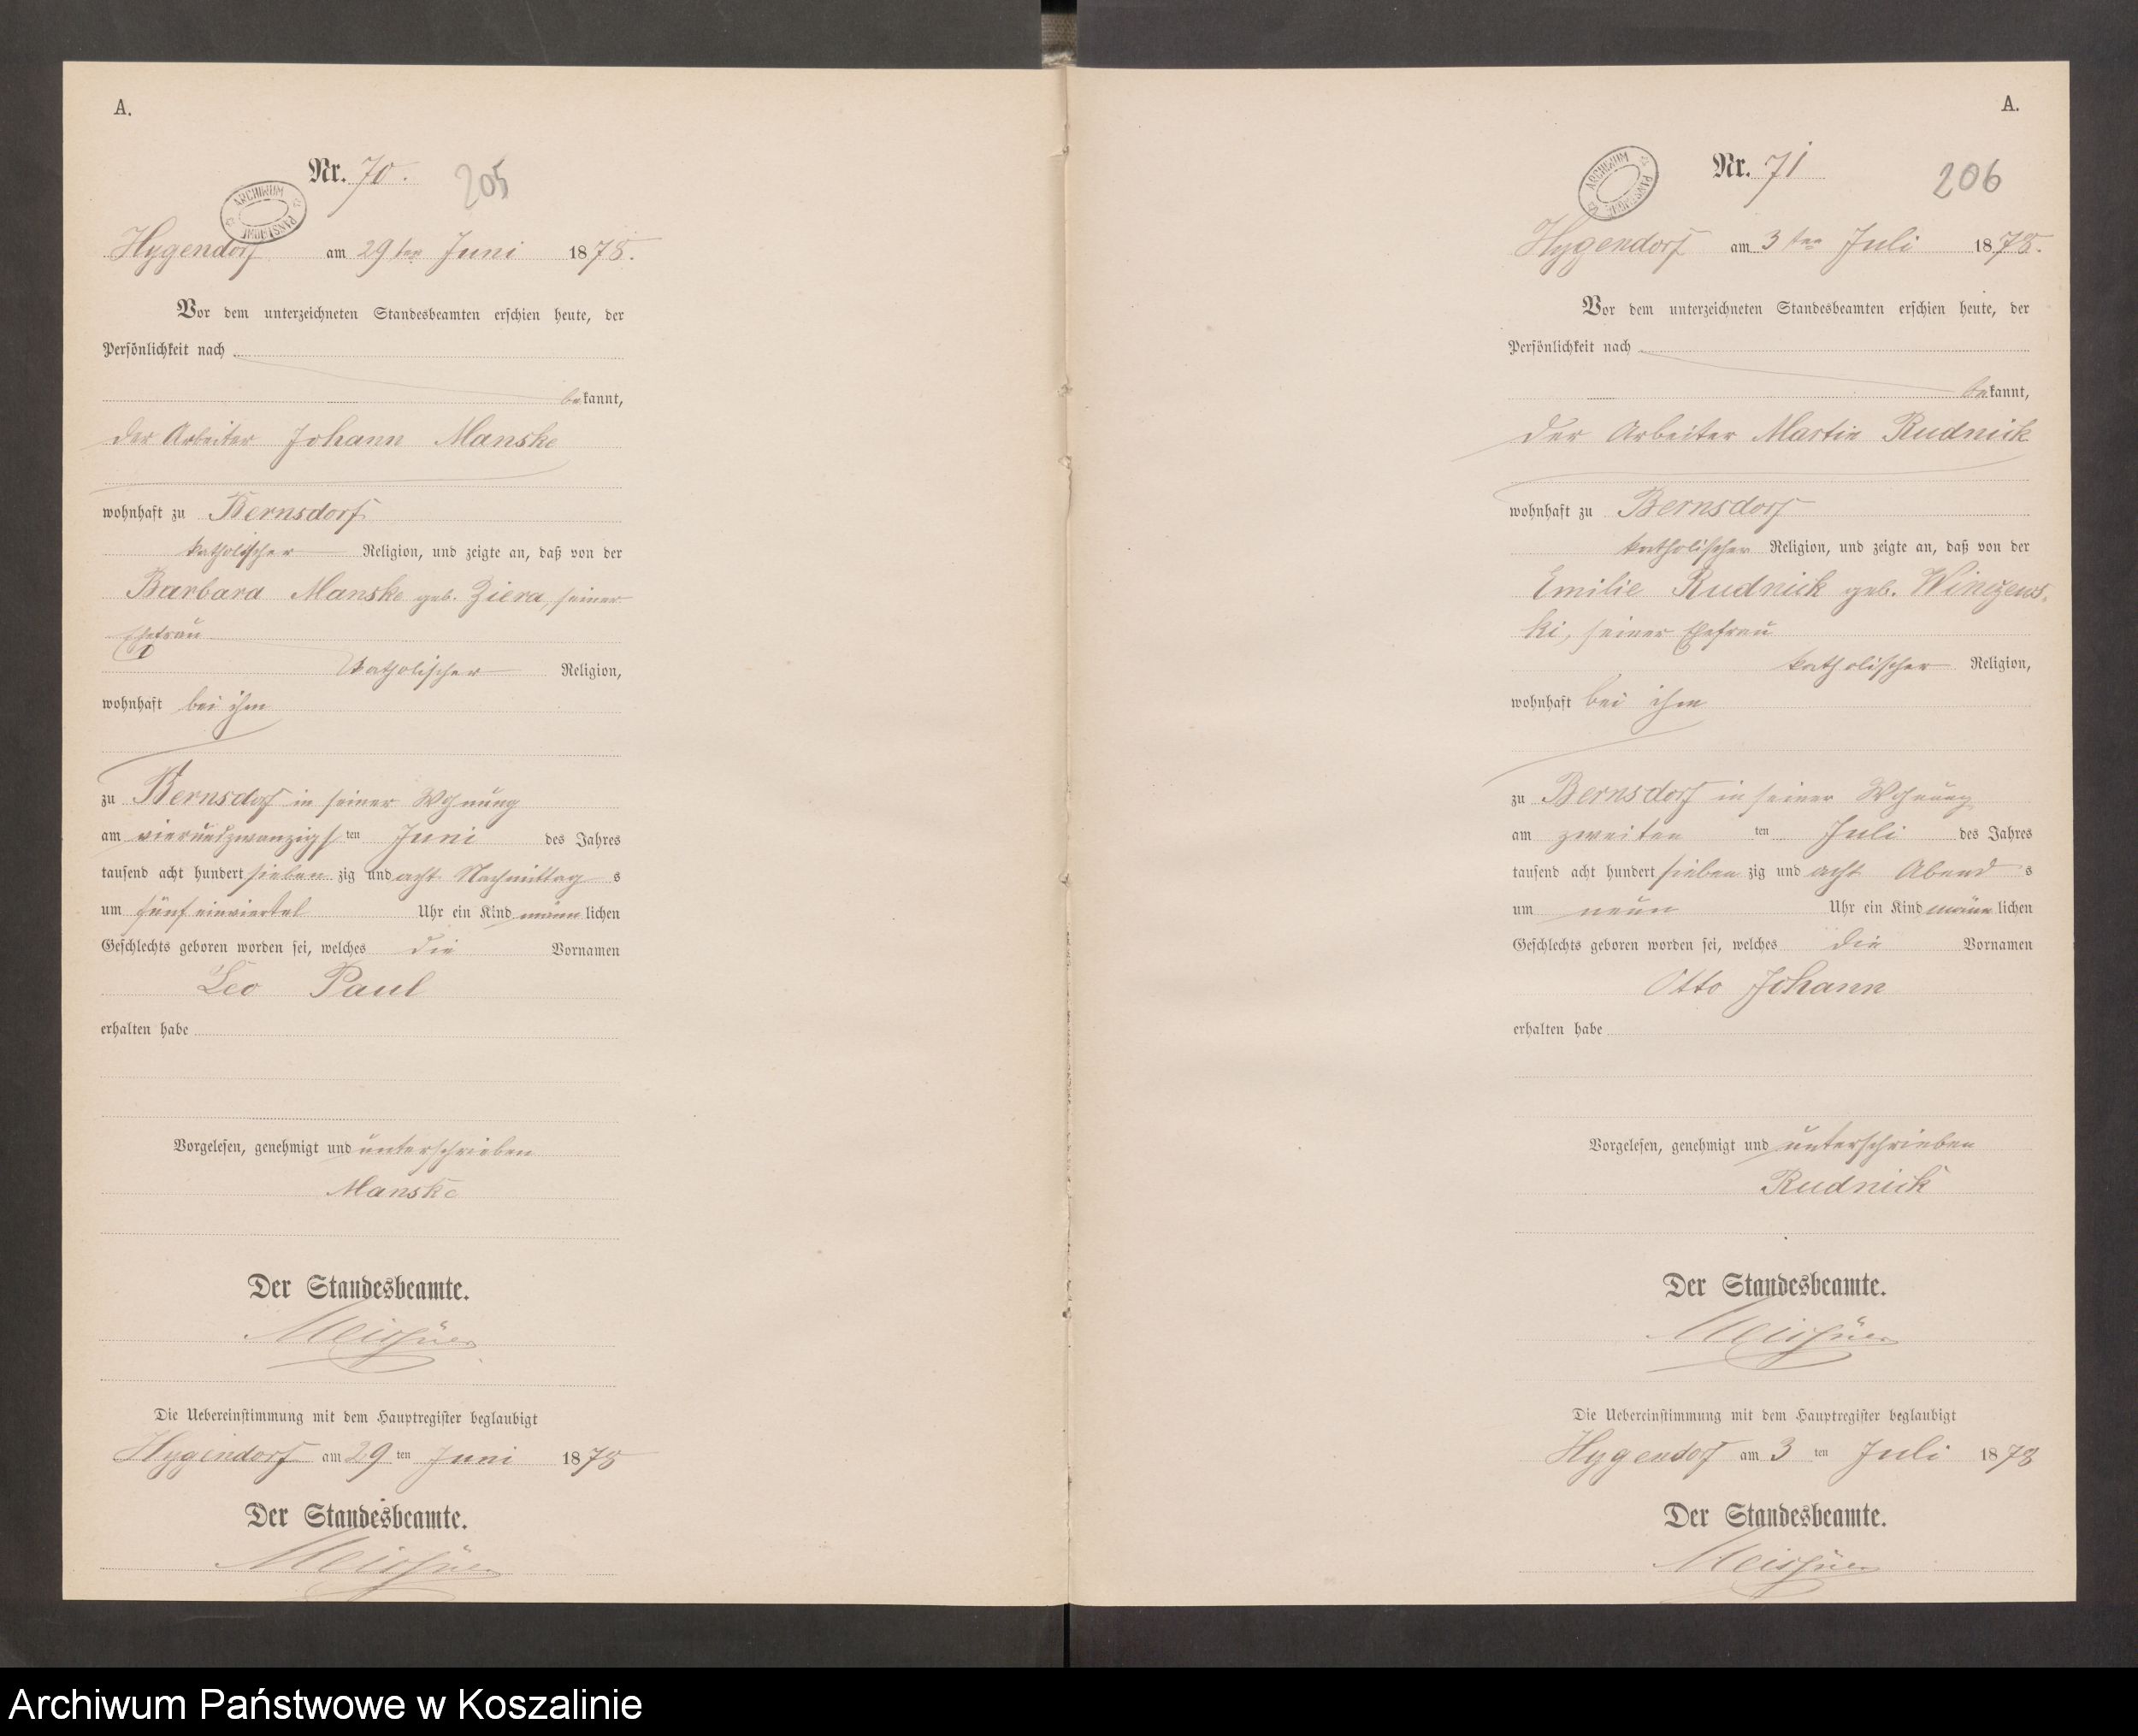 A.
Nr. 70.
205
ARCHIWUM PAŃSTWOWE
Hygendorf am 29ten Juni 1878.
Vor dem unterzeichneten Standesbeamten erschien heute, der
Persönlichkeit nach
bekannt,
der Arbeiter Johann Manske
wohnhaft zu Bernsdorf
katholischer Religion, und zeigte an, daß von der
Barbara Manske geb. Ziera, seiner
Ehefrau
katholischer Religion,
wohnhaft bei ihm
zu Bernsdorf in seiner Wohnung
am vierundzwanzigsten Juni des Jahres
tausend acht hundert siebenzig und acht Nachmittags
um fünf einviertel Uhr ein Kind männlichen
Geschlechts geboren worden sei, welches die Vornamen
Leo Paul
erhalten habe
Vorgelesen, genehmigt und unterschrieben
Manske
Der Standesbeamte.
Die Uebereinstimmung mit dem Hauptregister beglaubigt
Hygendorf am 29ten Juni 1878
Der Standesbeamte.
A.
Nr. 71
206
ARCHIWUM PAŃSTWOWE
Hygendorf am 3ten Juli 1878.
Vor dem unterzeichneten Standesbeamten erschien heute, der
Persönlichkeit nach
bekannt,
der Arbeiter Martin Rudnick
wohnhaft zu Bernsdorf
katholischer Religion, und zeigte an, daß von der
Emilie Rudnick geb. Winczews-
ki, seiner Ehefrau
katholischer Religion,
wohnhaft bei ihm
zu Bernsdorf in seiner Wohnung
am zweiten ten Juli des Jahres
tausend acht hundert siebenzig und acht Abends
um neun Uhr ein Kind männlichen
Geschlechts geboren worden sei, welches die Vornamen
Otto Johann
erhalten habe
Vorgelesen, genehmigt und unterschrieben
Rudnick
Der Standesbeamte.
Die Uebereinstimmung mit dem Hauptregister beglaubigt
Hygendorf am 3ten Juli 1878
Der Standesbeamte.
Archiwum Państwowe w Koszalinie